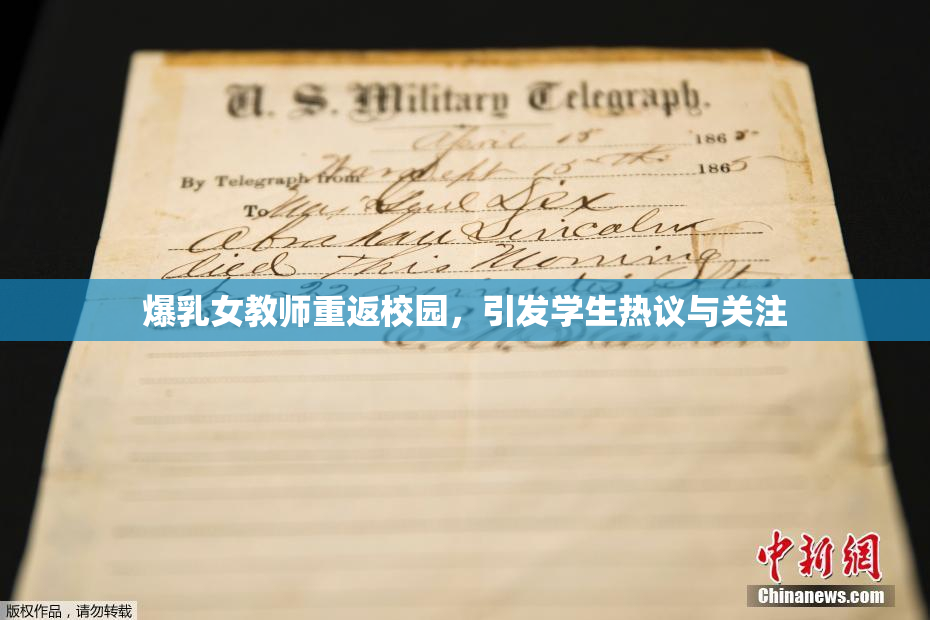 U. S. Military Telegraph.
April 15 1865
By Telegraph from War Dept 15th 1865
To Maj Genl Dix
Abraham Lincoln
died this Morning
22 minutes after
爆乳女教师重返校园，引发学生热议与关注
E. M. Stanton
中新网
Chinanews.com
版权作品，请勿转载